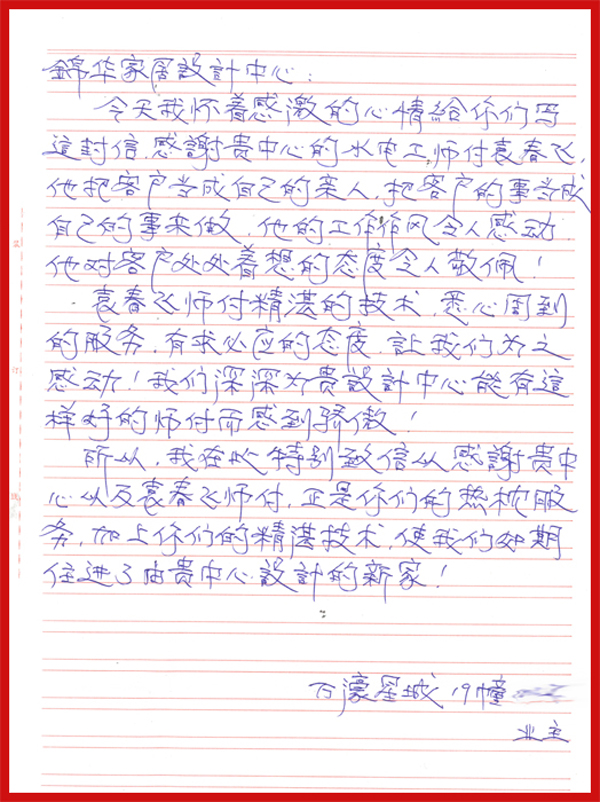 錦华家居設計中心：
今天我怀着感激的心情給你们写
這封信.感謝贵中心的水电工师付袁春飞,
他把客户当成自己的亲人.把客户的事当成
自己的事来做.他的工作作风令人感动.
他对客户处处着想的态度令人敬佩！
袁春飞师付精湛的技术.悉心周到
的服务.有求必应的态度.让我们为之
感动！我们深深为贵設計中心能有這
样好的师付而感到骄傲！
所以.我在此特别致信以感謝贵中
心以及袁春飞师付.正是你们的热忱服
务.加上你们的精湛技术.使我们如期
住进了由贵中心設計的新家！
万濠星城 19幢
业主